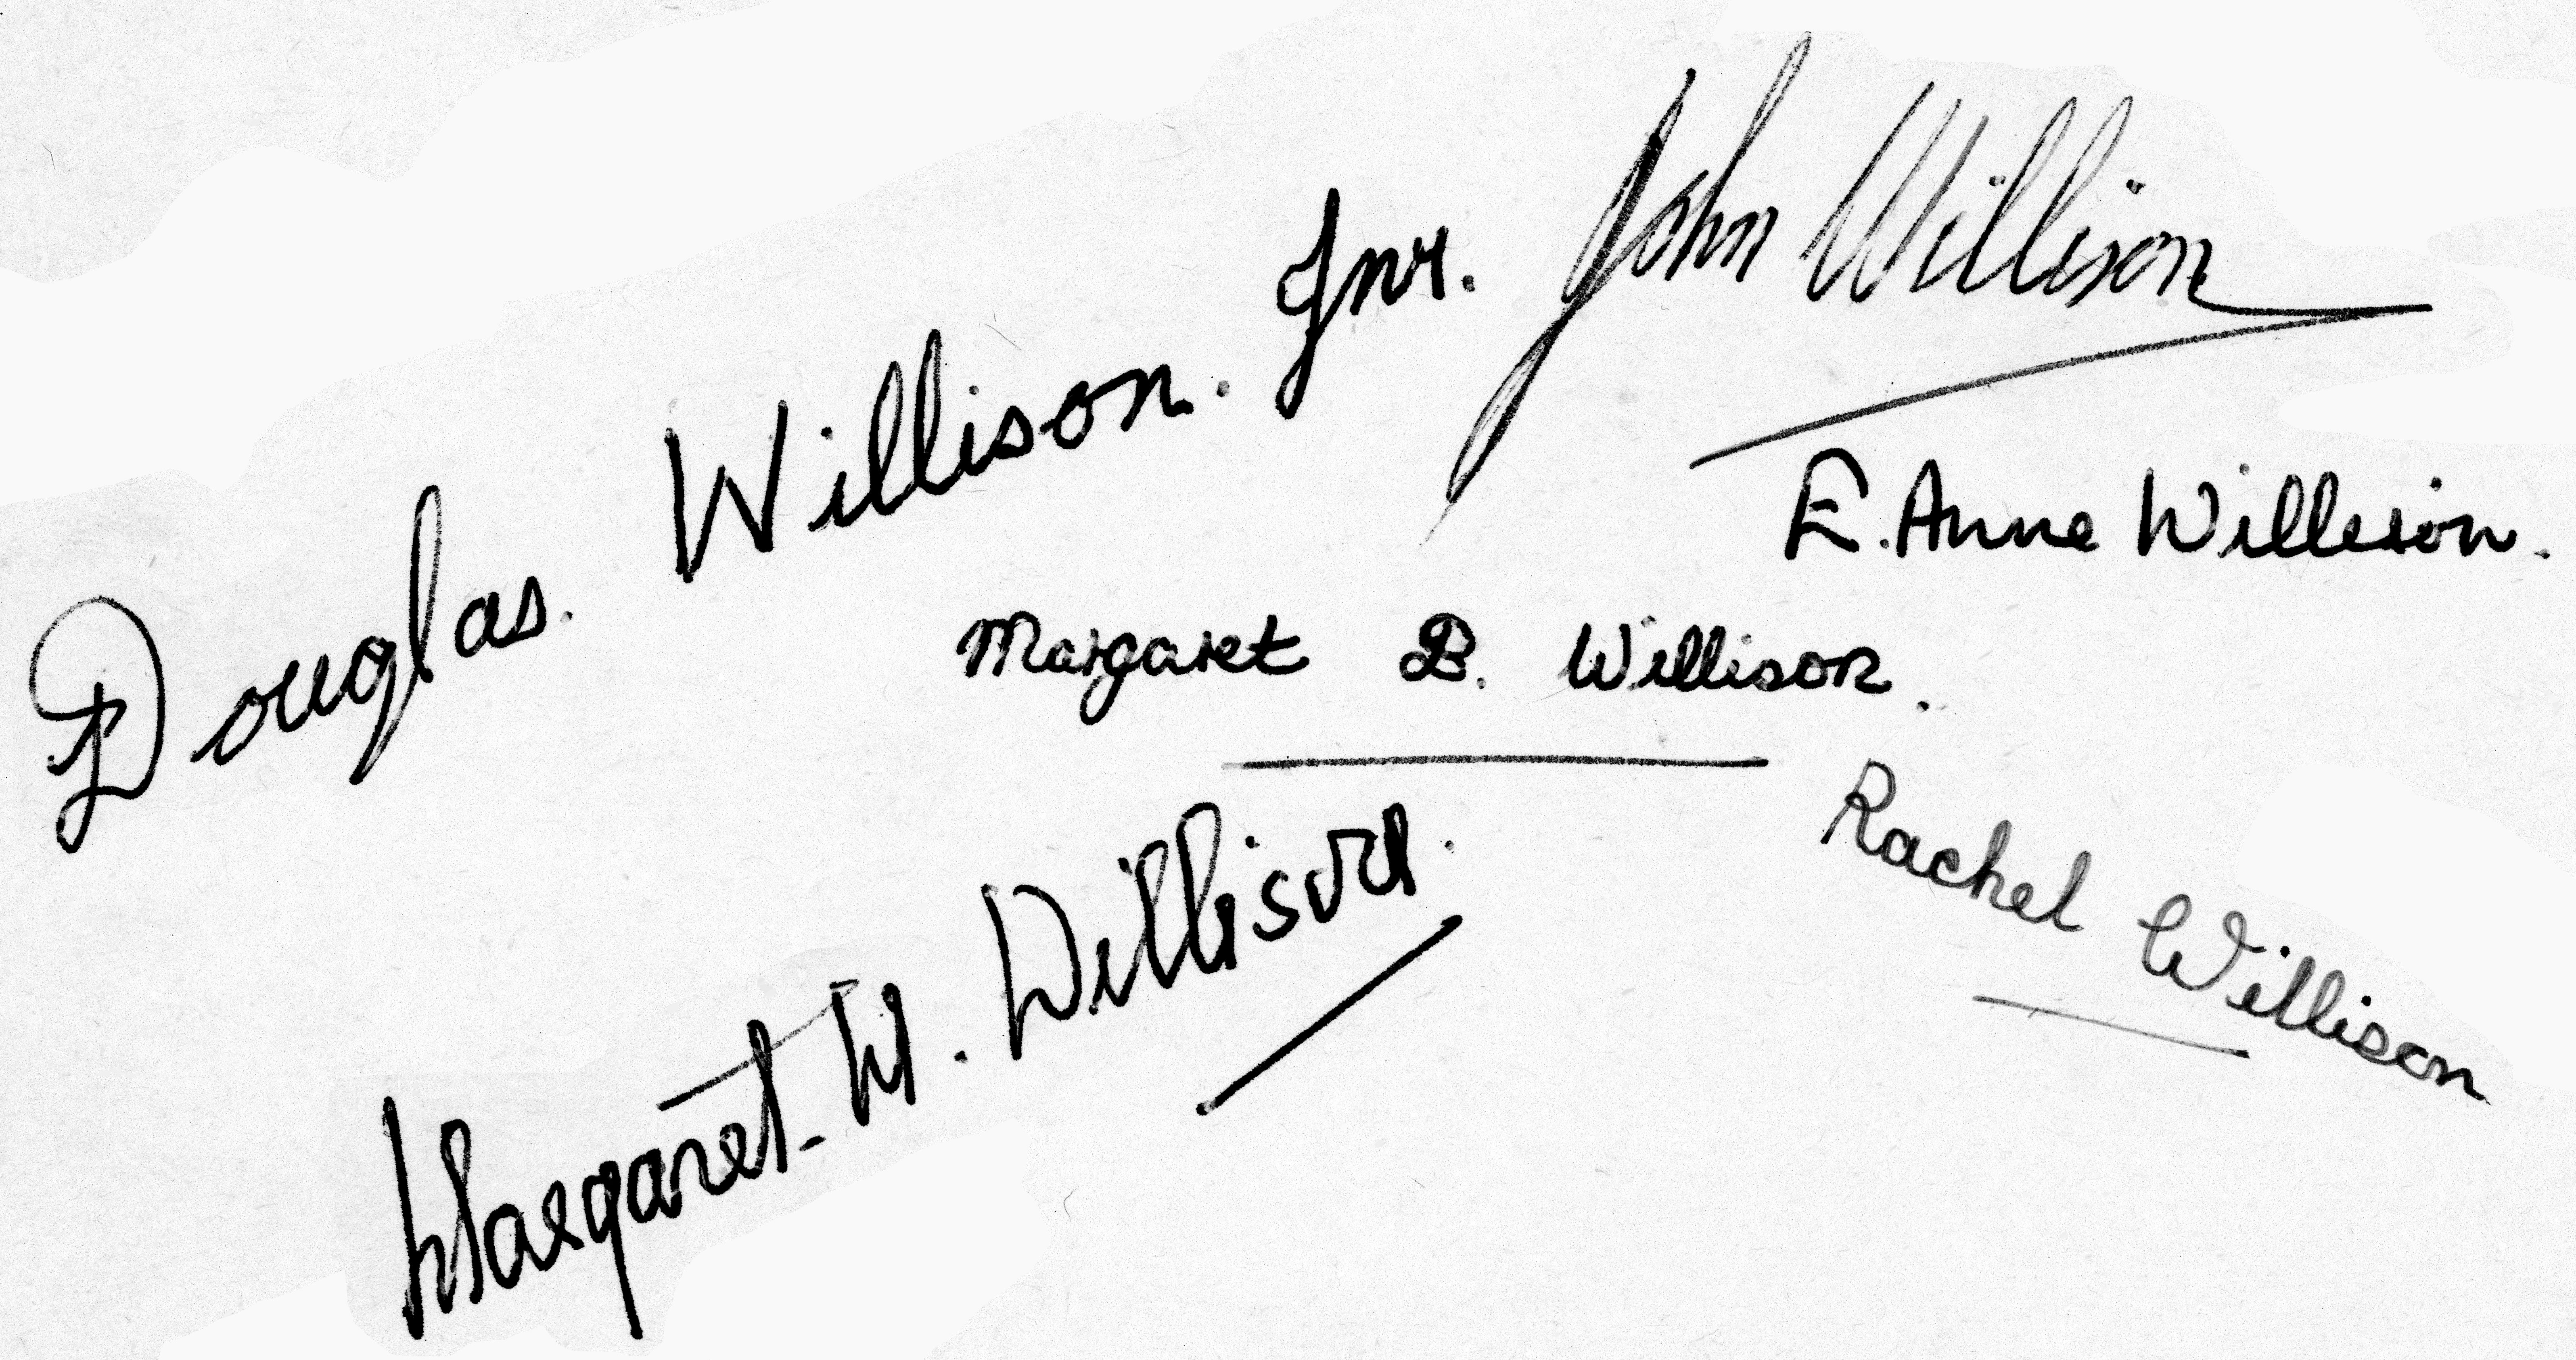 Douglas. Willison. Jnr.
John Willison
E. Anne Willison.
Margaret B. Willison.
Rachel Willison
Margaret W. Willison.